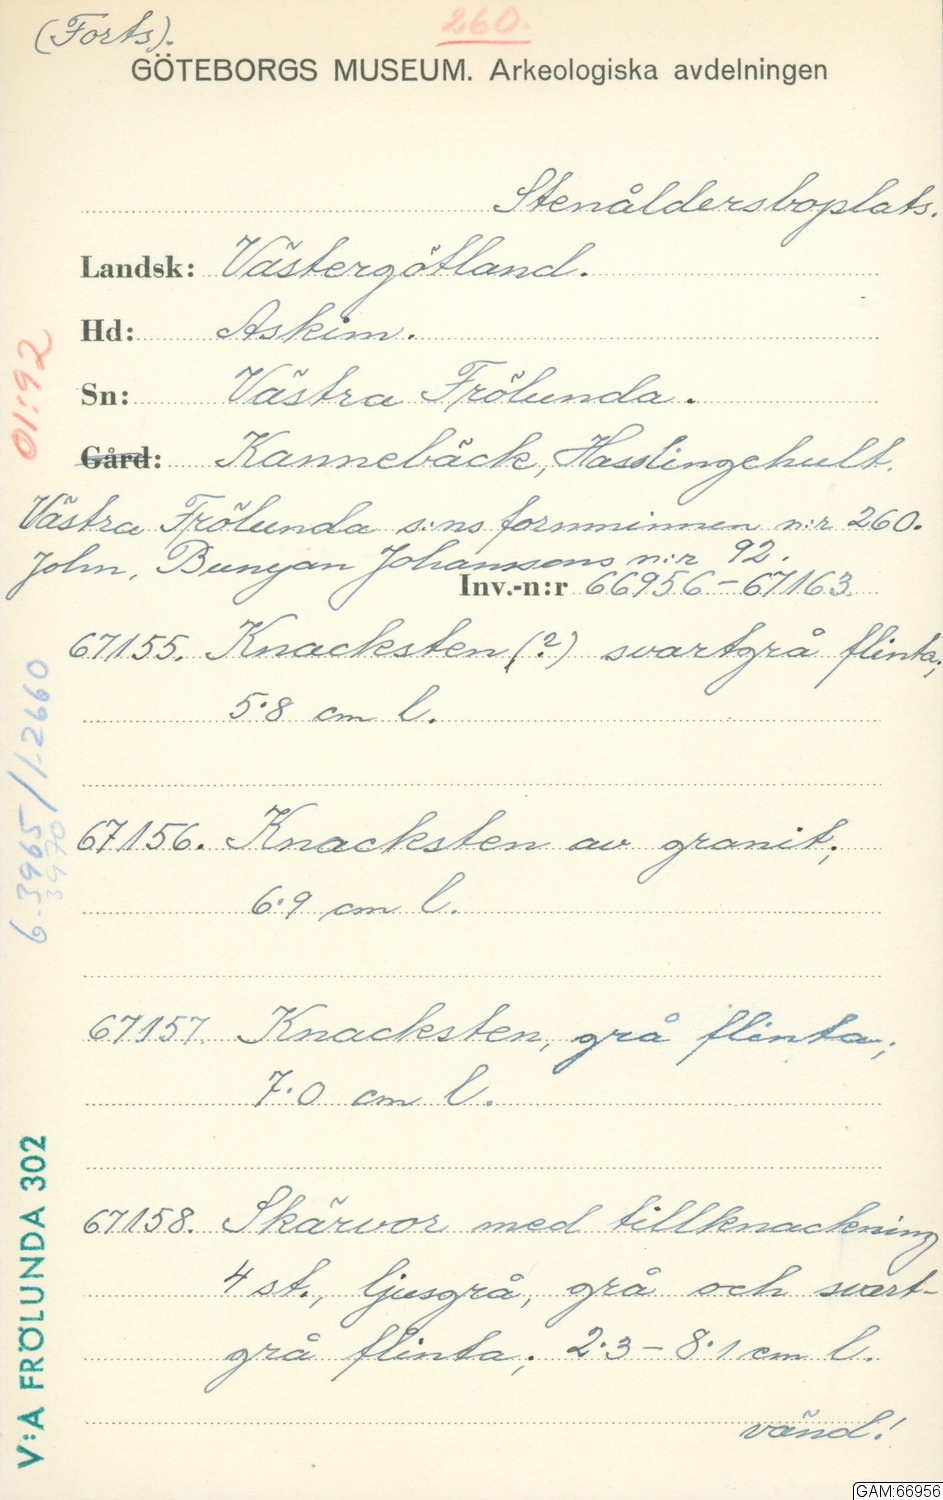 (Forts).
260.
GÖTEBORGS MUSEUM. Arkeologiska avdelningen
Stenåldersboplats.
Landsk: Västergötland.
Hd: Askim.
Sn: Västra Frölunda.
Gård: Kannebäck, Hasslingehult.
Västra Frölunda s:ns fornminnen n:r 260.
John, Bunyan Johanssons n:r 92.
Inv.-n:r 66956-67163.
67155. Knacksten (?) svartgrå flinta;
5·8 cm l.
67156. Knacksten av granit;
6·9 cm l.
67157. Knacksten, grå flinta;
7·0 cm l.
67158. Skärvor med tillknackning
4 st., ljusgrå, grå och svart-
grå flinta; 2·3-8·1 cm l.
vänd!
01:92
6-3965/1-2660
3970
V:A FRÖLUNDA 302
GAM:66956